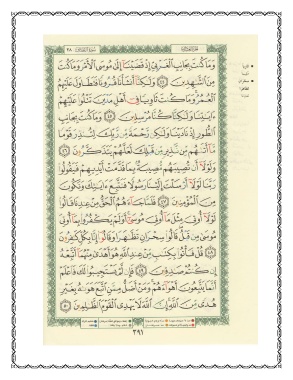 وَمَا كُنتَ بِجَانِبِ الْغَرْبِيِّ إِذْ قَضَيْنَا إِلَىٰ مُوسَى الْأَمْرَ وَمَا كُنتَ
مِنَ الشَّاهِدِينَ ٤٤ وَلَٰكِنَّا أَنشَأْنَا قُرُونًا فَتَطَاوَلَ عَلَيْهِمُ
الْعُمُرُ وَمَا كُنتَ ثَاوِيًا فِي أَهْلِ مَدْيَنَ تَتْلُو عَلَيْهِمْ
آيَاتِنَا وَلَٰكِنَّا كُنَّا مُرْسِلِينَ ٤٥ وَمَا كُنتَ بِجَانِبِ
الطُّورِ إِذْ نَادَيْنَا وَلَٰكِن رَّحْمَةً مِّن رَّبِّكَ لِتُنذِرَ قَوْمًا
مَّا أَتَاهُم مِّن نَّذِيرٍ مِّن قَبْلِكَ لَعَلَّهُمْ يَتَذَكَّرُونَ ٤٦
وَلَوْلَا أَن تُصِيبَهُم مُّصِيبَةٌ بِمَا قَدَّمَتْ أَيْدِيهِمْ فَيَقُولُوا
رَبَّنَا لَوْلَا أَرْسَلْتَ إِلَيْنَا رَسُولًا فَنَتَّبِعَ آيَاتِكَ وَنَكُونَ
مِنَ الْمُؤْمِنِينَ ٤٧ فَلَمَّا جَاءَهُمُ الْحَقُّ مِنْ عِندِنَا قَالُوا
لَوْلَا أُوتِيَ مِثْلَ مَا أُوتِيَ مُوسَىٰ أَوَلَمْ يَكْفُرُوا بِمَا أُوتِيَ
مُوسَىٰ مِن قَبْلُ قَالُوا سِحْرَانِ تَظَاهَرَا وَقَالُوا إِنَّا بِكُلٍّ كَافِرُونَ
٤٨ قُلْ فَأْتُوا بِكِتَابٍ مِّنْ عِندِ اللَّهِ هُوَ أَهْدَىٰ مِنْهُمَا أَتَّبِعْهُ
إِن كُنتُمْ صَادِقِينَ ٤٩ فَإِن لَّمْ يَسْتَجِيبُوا لَكَ فَاعْلَمْ
أَنَّمَا يَتَّبِعُونَ أَهْوَاءَهُمْ وَمَنْ أَضَلُّ مِمَّنِ اتَّبَعَ هَوَاهُ بِغَيْرِ
هُدًى مِّنَ اللَّهِ إِنَّ اللَّهَ لَا يَهْدِي الْقَوْمَ الظَّالِمِينَ ٥٠
٣٩١